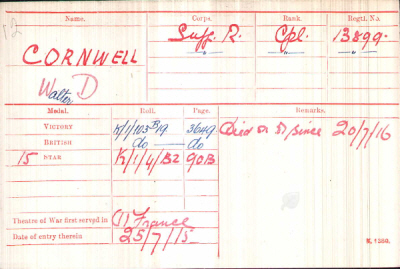 12
Name. Corps. Rank. Regtl. No.
CORNWELL Suff. R. Cpl. 13899.
Walter D " " "
Medal. Roll. Page. Remarks.
VICTORY K/1/103 B19 3649 Died or P/since 20/7/16
BRITISH do do
15 STAR K/1/4/B2 90B
Theatre of War first served in (1) France
Date of entry therein 25/7/15
K. 1380.